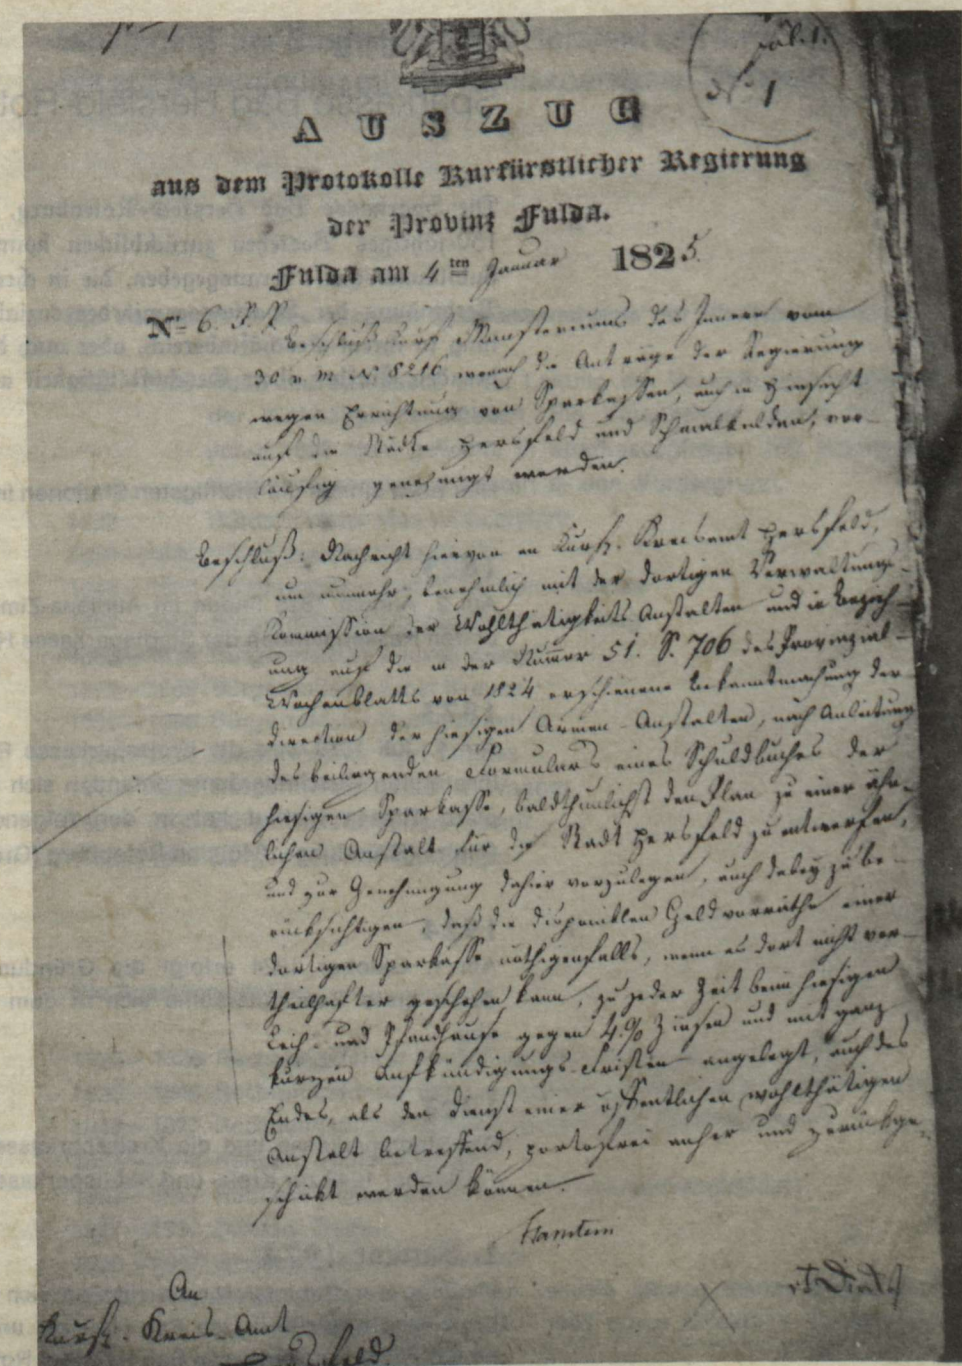 No 1
AUSZUG
aus dem Protokolle Kurfürstlicher Regierung
der Provinz Fulda.
Fulda am 4ten Januar 1825.
No 6. P. P. Beschluß Kurf. Ministeriums des Innern vom
30 v. M. No 8216 wonach die Anträge der Regierung
wegen Errichtung von Sparkassen, auch in Hinsicht
auf die Städte Hersfeld und Schmalkalden, vor-
läufig genehmigt werden.
Beschluß: Nachricht hiervon an Kurf. Kreisamt Hersfeld,
um nunmehr, benehmlich mit der dortigen Verwaltungs-
Kommission der Wohlthätigkeits Anstalten und in Bezieh-
ung auf die in der Nummer 51. S. 706 des Provinzial-
Wochenblatts von 1824 erschienene Bekanntmachung der
Direction der hiesigen Armen-Anstalten, nach Anleitung
des beiliegenden Formulars eines Schuldbuches der
hiesigen Sparkasse, baldthunlichst den Plan zu einer ähn-
lichen Anstalt für die Stadt Hersfeld zu entwerfen,
und zur Genehmigung dahier vorzulegen, auch dabey zu be-
rücksichtigen, daß die disponiblen Geldvorräthe einer
dortigen Sparkasse nöthigenfalls, wenn es dort nicht vor-
theilhafter geschehen kann, zu jeder Zeit beim hiesigen
Leih- und Pfandhause gegen 4% Zinsen und mit ganz
kurzen Aufkündigungs-Fristen angelegt, auch des
Endes, als den Dienst einer öffentlichen wohlthätigen
Anstalt betreffend, portofrei anher und zurückge-
schickt werden können.
An
Kurf. Kreis-Amt